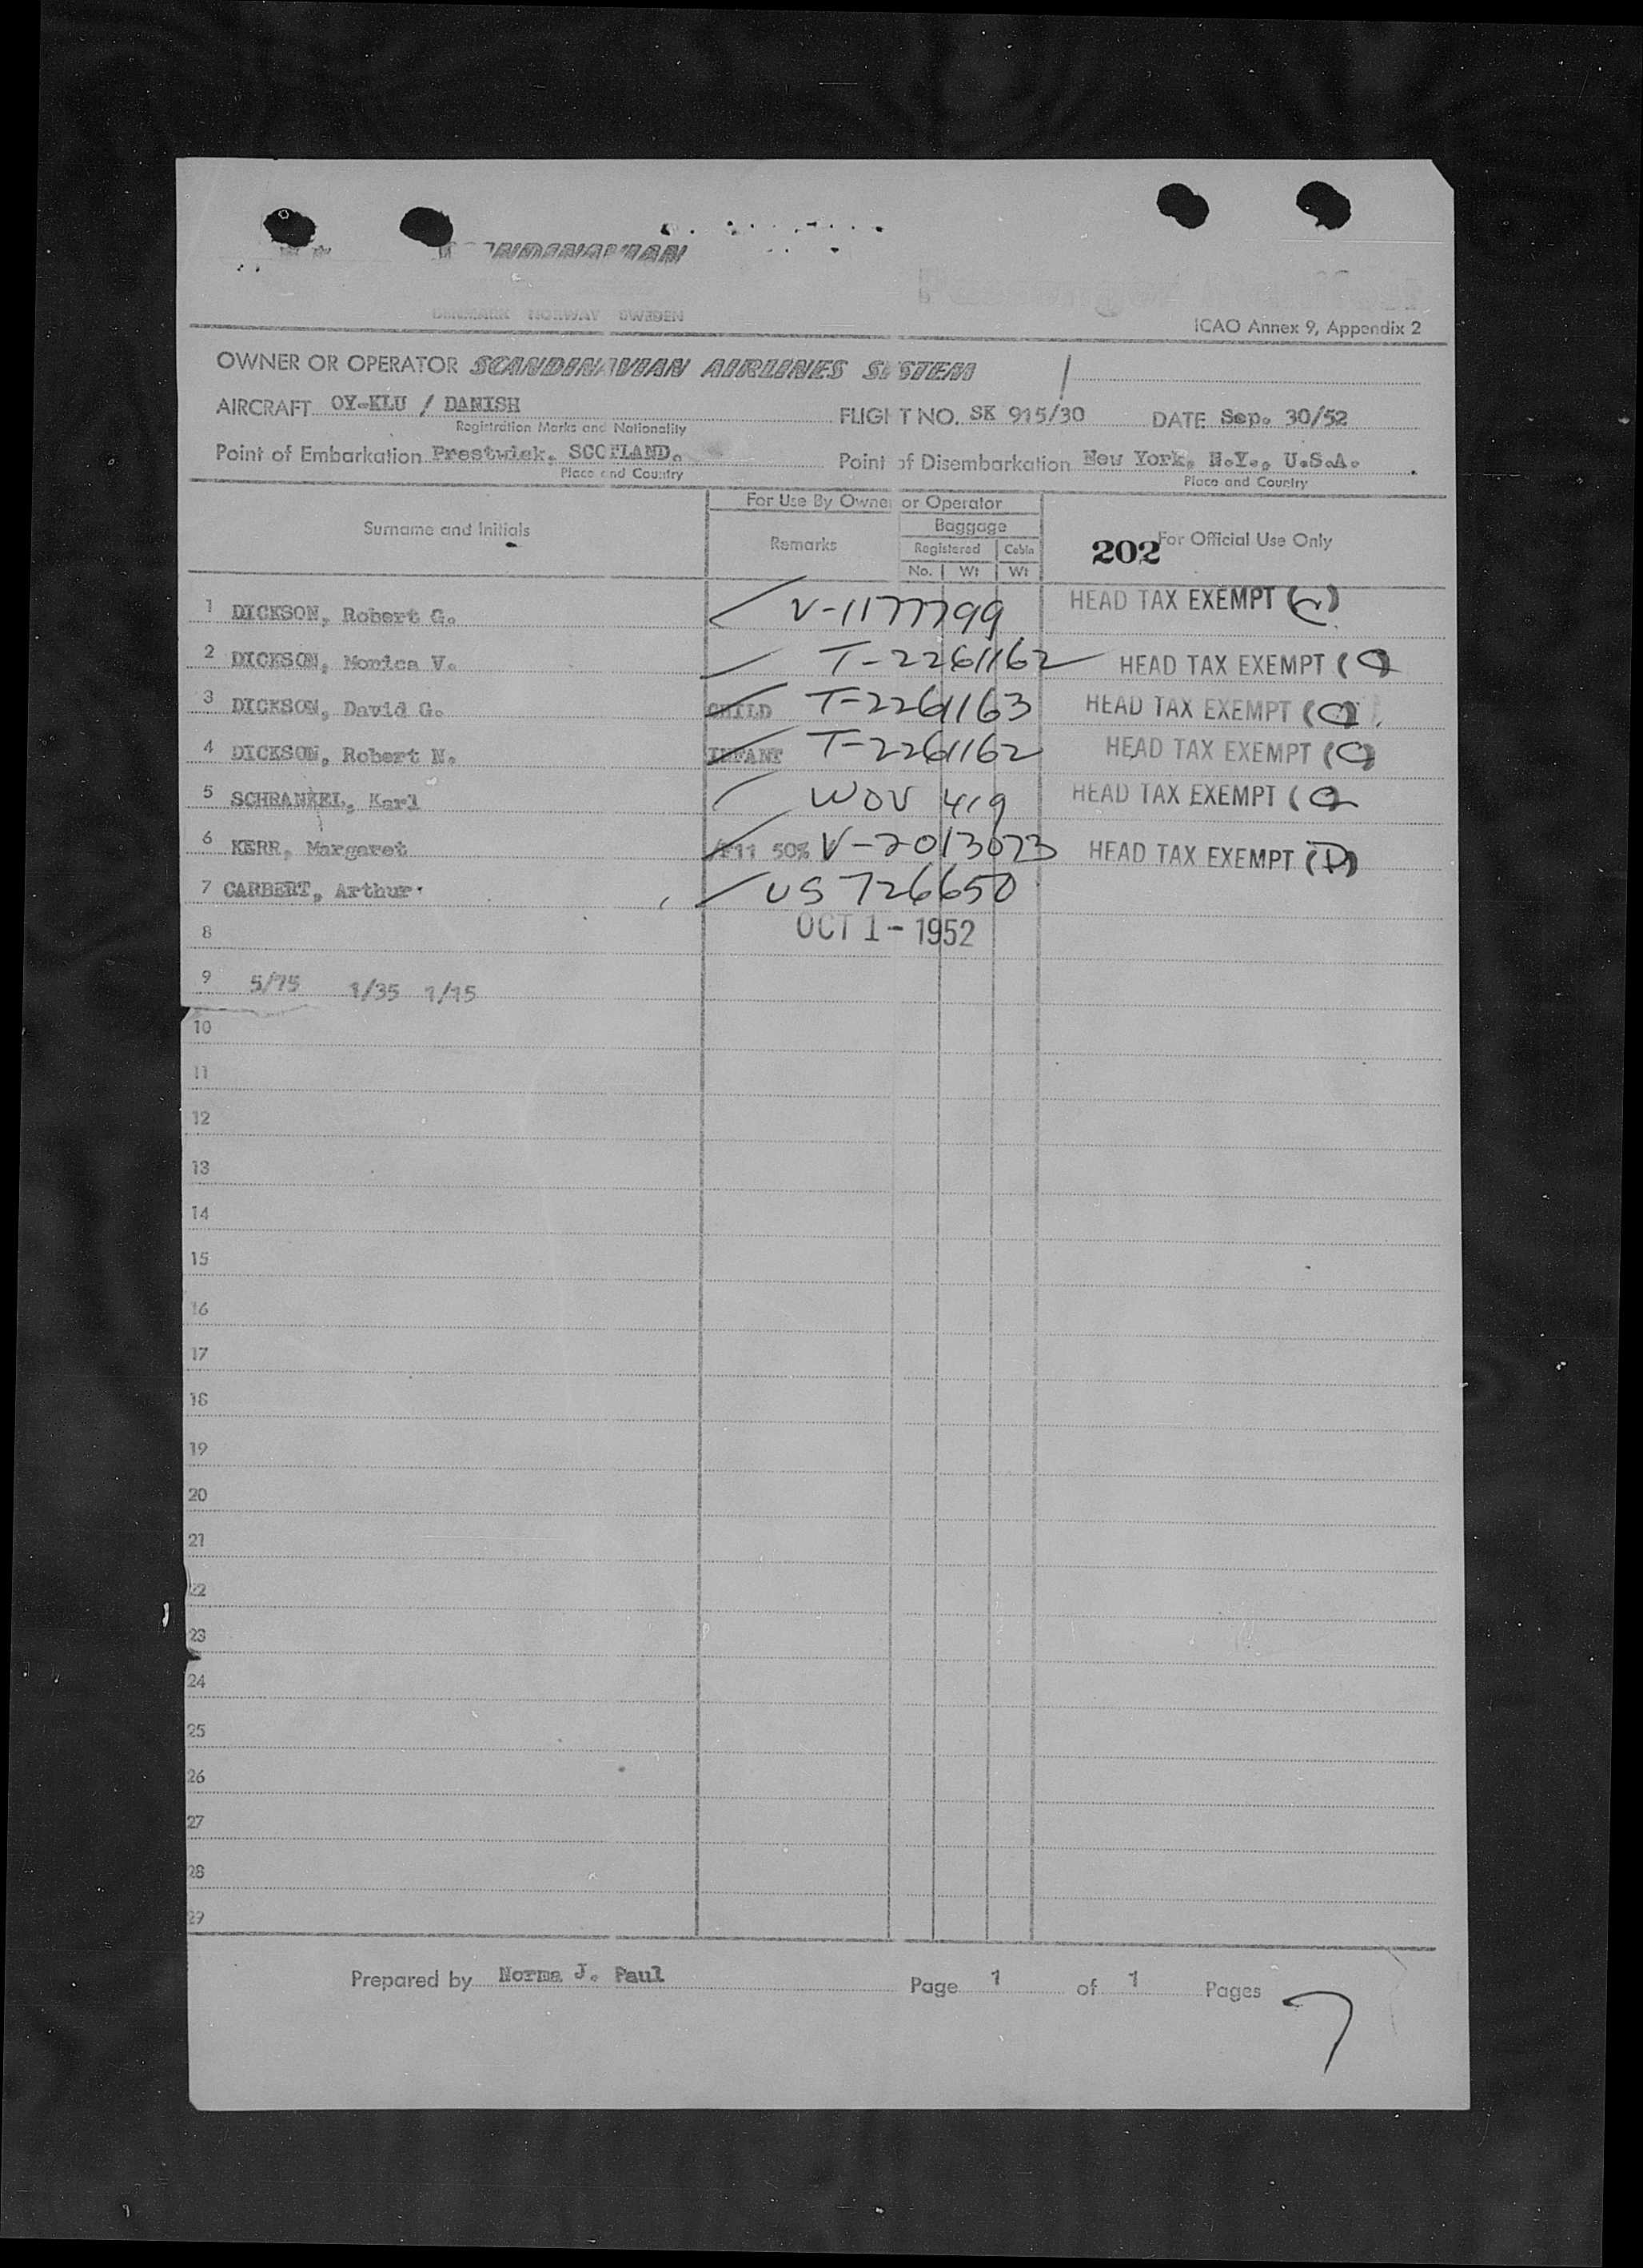 SCANDINAVIAN
DENMARK NORWAY SWEDEN
ICAO Annex 9, Appendix 2
OWNER OR OPERATOR SCANDINAVIAN AIRLINES SYSTEM
AIRCRAFT OY-KLU / DANISH FLIGHT NO. SK 915/30 DATE Sep. 30/52
Registration Marks and Nationality
Point of Embarkation Prestwick, SCOTLAND. Point of Disembarkation New York, N.Y., U.S.A.
Place and Country Place and Country
For Use By Owner or Operator
Surname and Initials Remarks Baggage
Registered Cabin
No. Wt Wt
202 For Official Use Only
1 DICKSON, Robert G. V-1177799 HEAD TAX EXEMPT (C)
2 DICKSON, Monica V. T-2261162 HEAD TAX EXEMPT (C)
3 DICKSON, David G. CHILD T-2261163 HEAD TAX EXEMPT (C)
4 DICKSON, Robert N. INFANT T-2261162 HEAD TAX EXEMPT (C)
5 SCHRANKEL, Karl WOV 419 HEAD TAX EXEMPT (C)
6 KERR, Margaret 50% V-2013073 HEAD TAX EXEMPT (D)
7 CARBERT, Arthur US 726650
8 OCT 1 - 1952
9 5/75 1/35 1/15
10
11
12
13
14
15
16
17
18
19
20
21
22
23
24
25
26
27
28
29
Prepared by Norma J. Paul Page 1 of 1 Pages
7